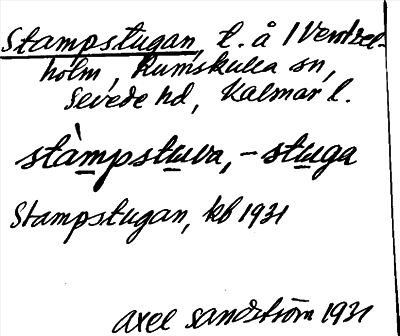 Stampstugan, l. å 1 Ventzel-
holm, Rumskulla sn,
Sevede hd, Kalmar l.
stàmpstuva, -stuga
Stampstugan, kb 1931
Axel Sandström 1931